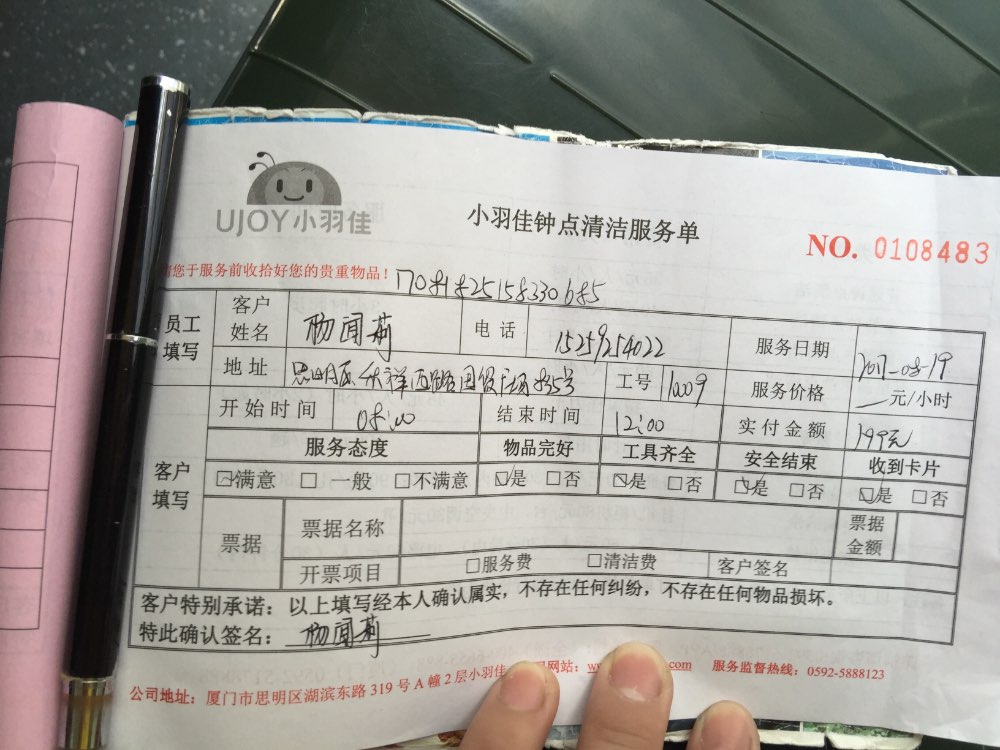 UJOY小羽佳
小羽佳钟点清洁服务单
NO. 0108483
您于服务前收拾好您的贵重物品！
员工填写
客户姓名 杨闻莉 电话 15259254022 服务日期 2017-08-19
地址 思明区 工号 1009 服务价格 元/小时
开始时间 08:00 结束时间 12:00 实付金额 199元
客户填写
服务态度 物品完好 工具齐全 安全结束 收到卡片
☑满意 □一般 □不满意 ☑是 □否 ☑是 □否 ☑是 □否 ☑是 □否
票据 票据名称 票据金额
开票项目 □服务费 □清洁费 客户签名
客户特别承诺：以上填写经本人确认属实，不存在任何纠纷，不存在任何物品损坏。
特此确认签名：杨闻莉
网站：w .com 服务监督热线：0592-5888123
公司地址：厦门市思明区湖滨东路319号A幢2层小羽佳